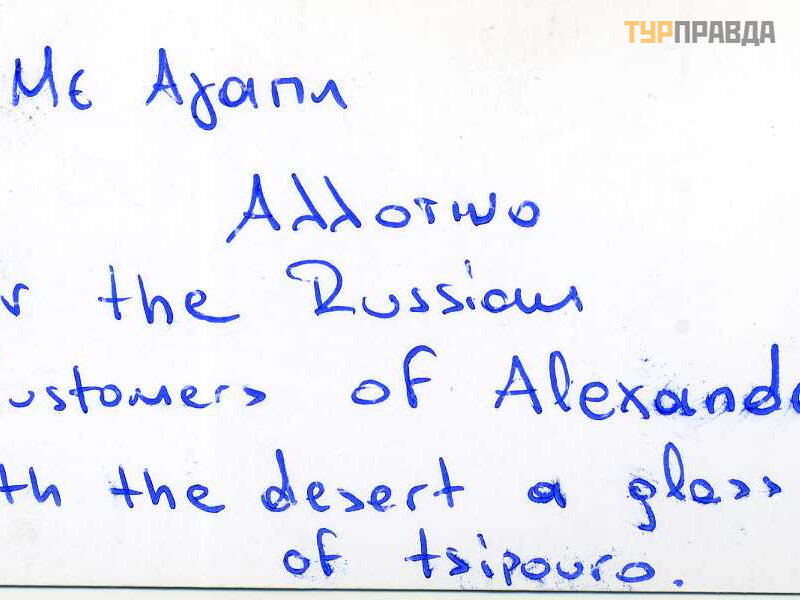 ТУРПРАВДА
Με Αγαπη
Αλλοτινο
r the Russians
customers of Alexande
th the desert a glass
of tsipouro.